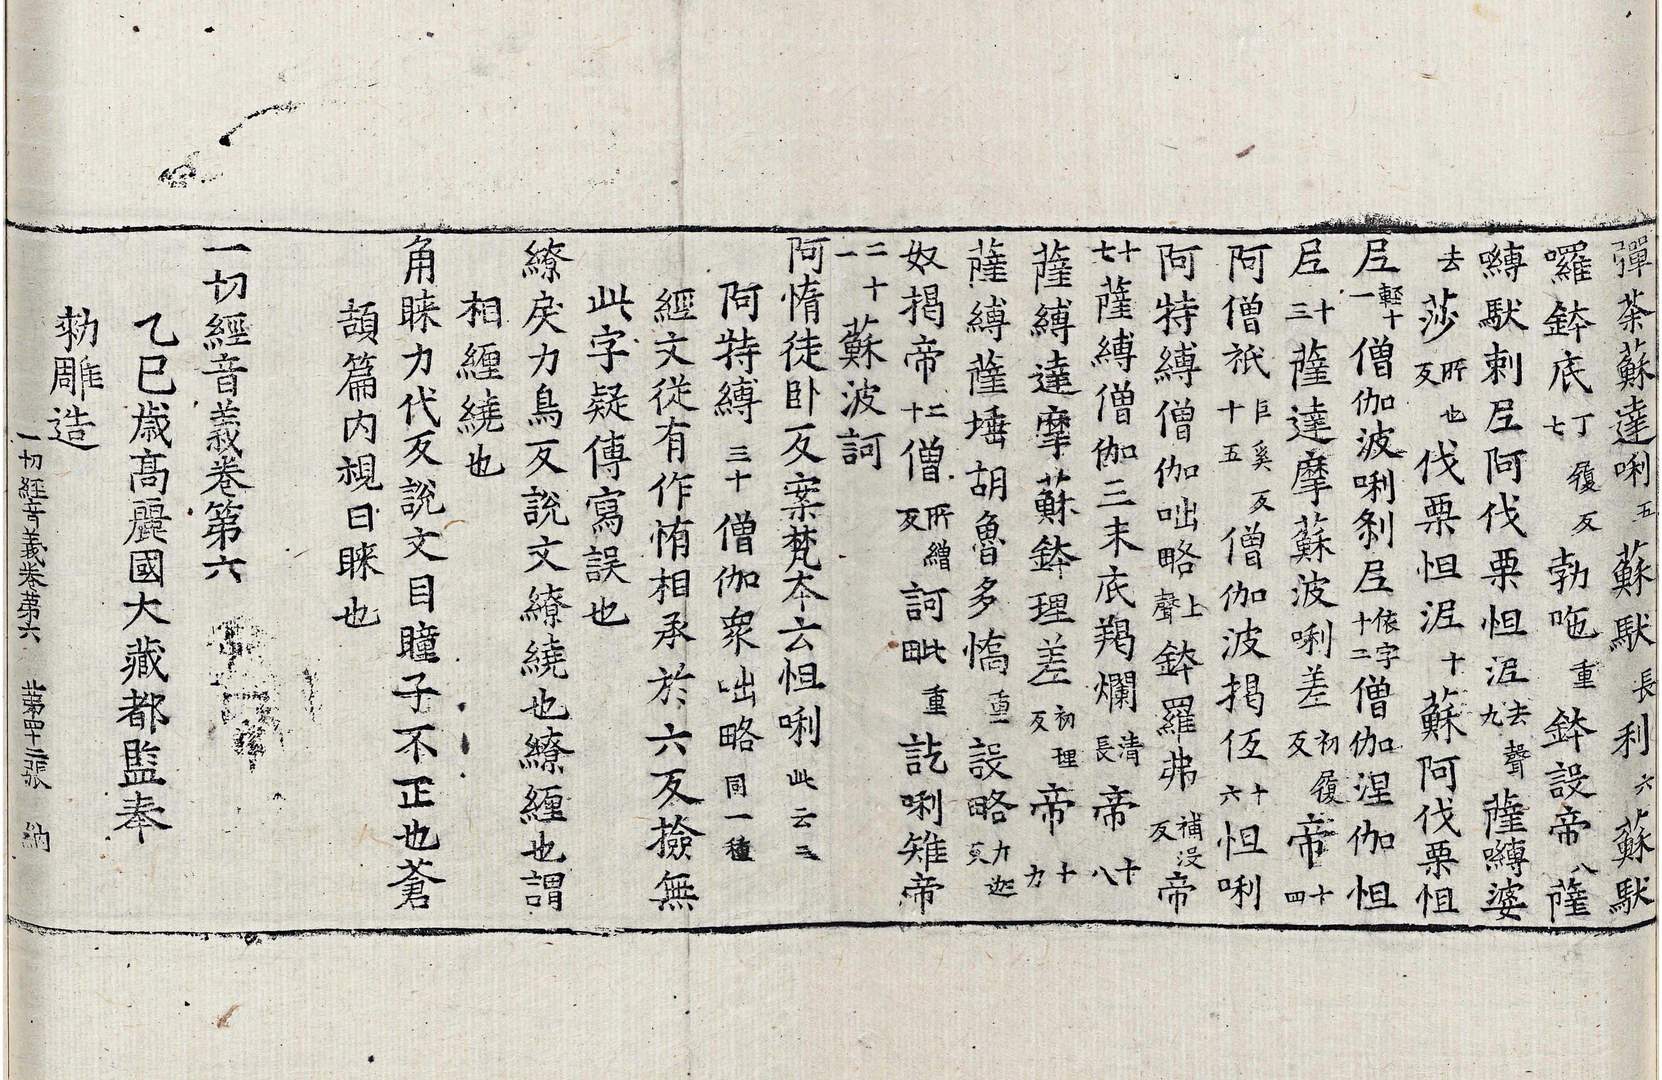 彈茶蘇達唎五蘇馱長利六蘇馱
囉鉢底七丁履反勃咃重鉢設帝八薩
嚩馱剌𡰱阿伐栗怛涅去聲九薩嚩婆
去莎所也反伐栗怛涅十蘇阿伐栗怛
𡰱輕十一僧伽波唎剎𡰱依字十二僧伽涅伽怛
𡰱十三薩達摩蘇波唎差初履反帝十四
阿僧祇巨奚反十五僧伽波揭伍十六怛唎
阿特縛僧伽咄略上聲鉢羅弗補沒反帝
十七薩縛僧伽三末底羯爛清長帝十八
薩縛達摩蘇鉢理差初理反帝十九
薩縛薩埵胡魯多憍重設略力迦反
奴揭帝二十僧所繒反訶毗重訖唎雉帝
二十一蘇波訶
阿惰徒卧反案梵本云怛唎此云三
阿特縛三十僧伽衆咄略同一種
經文從有作㤢相承於六反撿無
此字疑傳寫誤也
繚戾力鳥反說文繚繞也繚纏也謂
相纏繞也
角睞力代反說文目瞳子不正也蒼
頡篇內視曰睞也
一切經音義卷第六
乙巳歲高麗國大藏都監奉
勑雕造
一切經音義卷第六　第四十二張　納